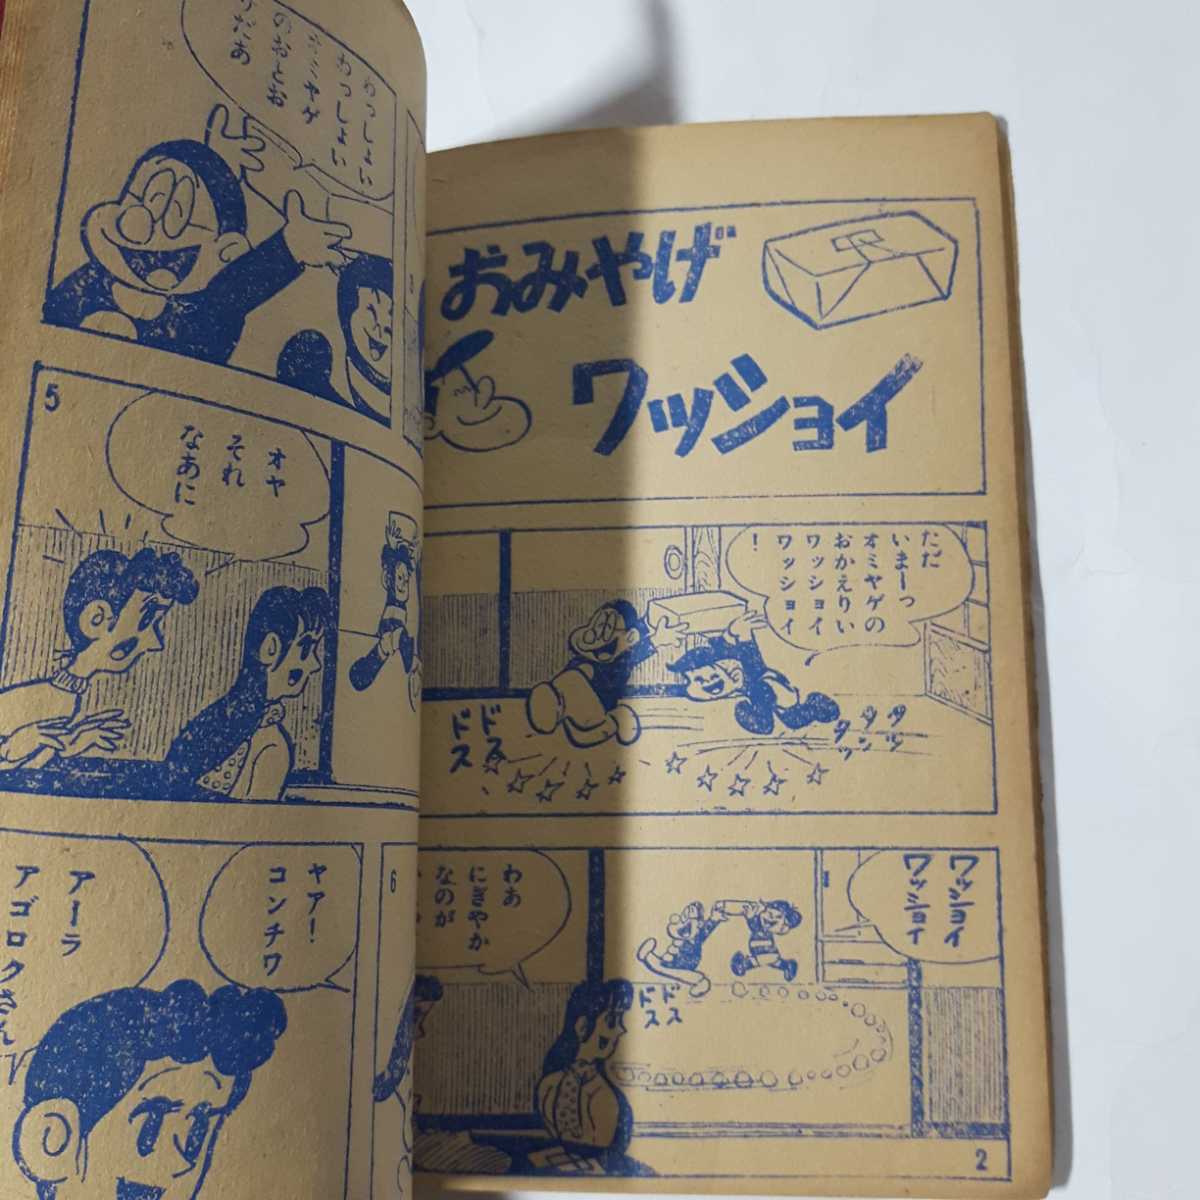 おみやげ
ワッショイ
ただ
いまーっ
オミヤゲの
おかえりい
ワッショイ
ワッショイ
！
タタタ
ドス
ドス
ワッショイ
ワッショイ
わあ
にぎやか
なのが
ドス
ドス
2
わっしょい
わっしょい
オミヤゲ
のおとお
りだあ
5
オヤ
それ
なあに
6
ヤア！
コンチワ
アーラ
アゴロクさん